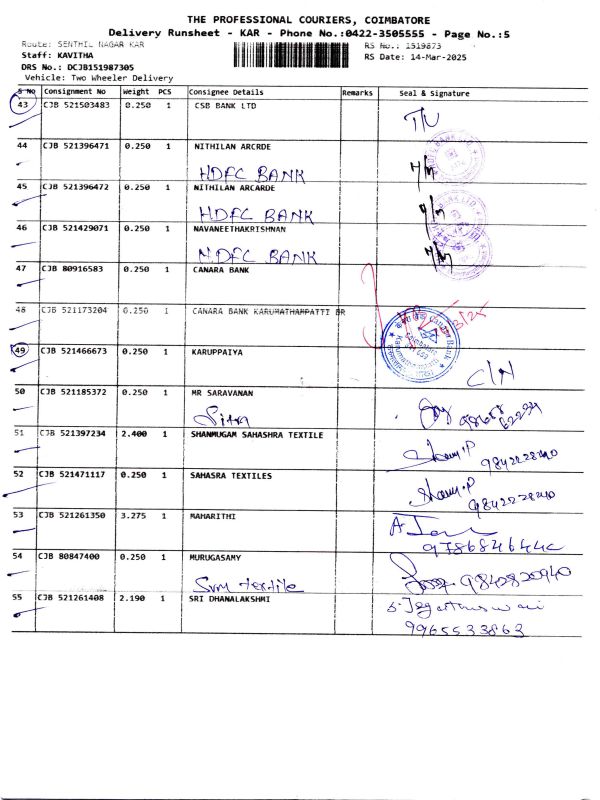 THE PROFESSIONAL COURIERS, COIMBATORE
Delivery Runsheet - KAR - Phone No.:0422-3505555 - Page No.:5
Route: SENTHIL NAGAR KAR
RS No.: 1519873
Staff: KAVITHA
RS Date: 14-Mar-2025
DRS No.: DCJB151987305
Vehicle: Two Wheeler Delivery
S No Consignment No Weight PCS Consignee Details Remarks Seal & Signature
43 CJB 521503483 0.250 1 CSB BANK LTD
44 CJB 521396471 0.250 1 NITHILAN ARCRDE
HDFC BANK
45 CJB 521396472 0.250 1 NITHILAN ARCARDE
HDFC BANK
46 CJB 521429071 0.250 1 NAVANEETHAKRISHNAN
HDFC BANK
47 CJB 80916583 0.250 1 CANARA BANK
48 CJB 521173204 0.250 1 CANARA BANK KARUMATHAMPATTI BR
49 CJB 521466673 0.250 1 KARUPPAIYA
C/N
50 CJB 521185372 0.250 1 MR SARAVANAN
51 CJB 521397234 2.400 1 SHANMUGAM SAHASHRA TEXTILE
9842228240
52 CJB 521471117 0.250 1 SAHASRA TEXTILES
9842228240
53 CJB 521261350 3.275 1 MAHARITHI
54 CJB 80847400 0.250 1 MURUGASAMY
textile 9840820940
55 CJB 521261408 2.190 1 SRI DHANALAKSHMI
9965533863